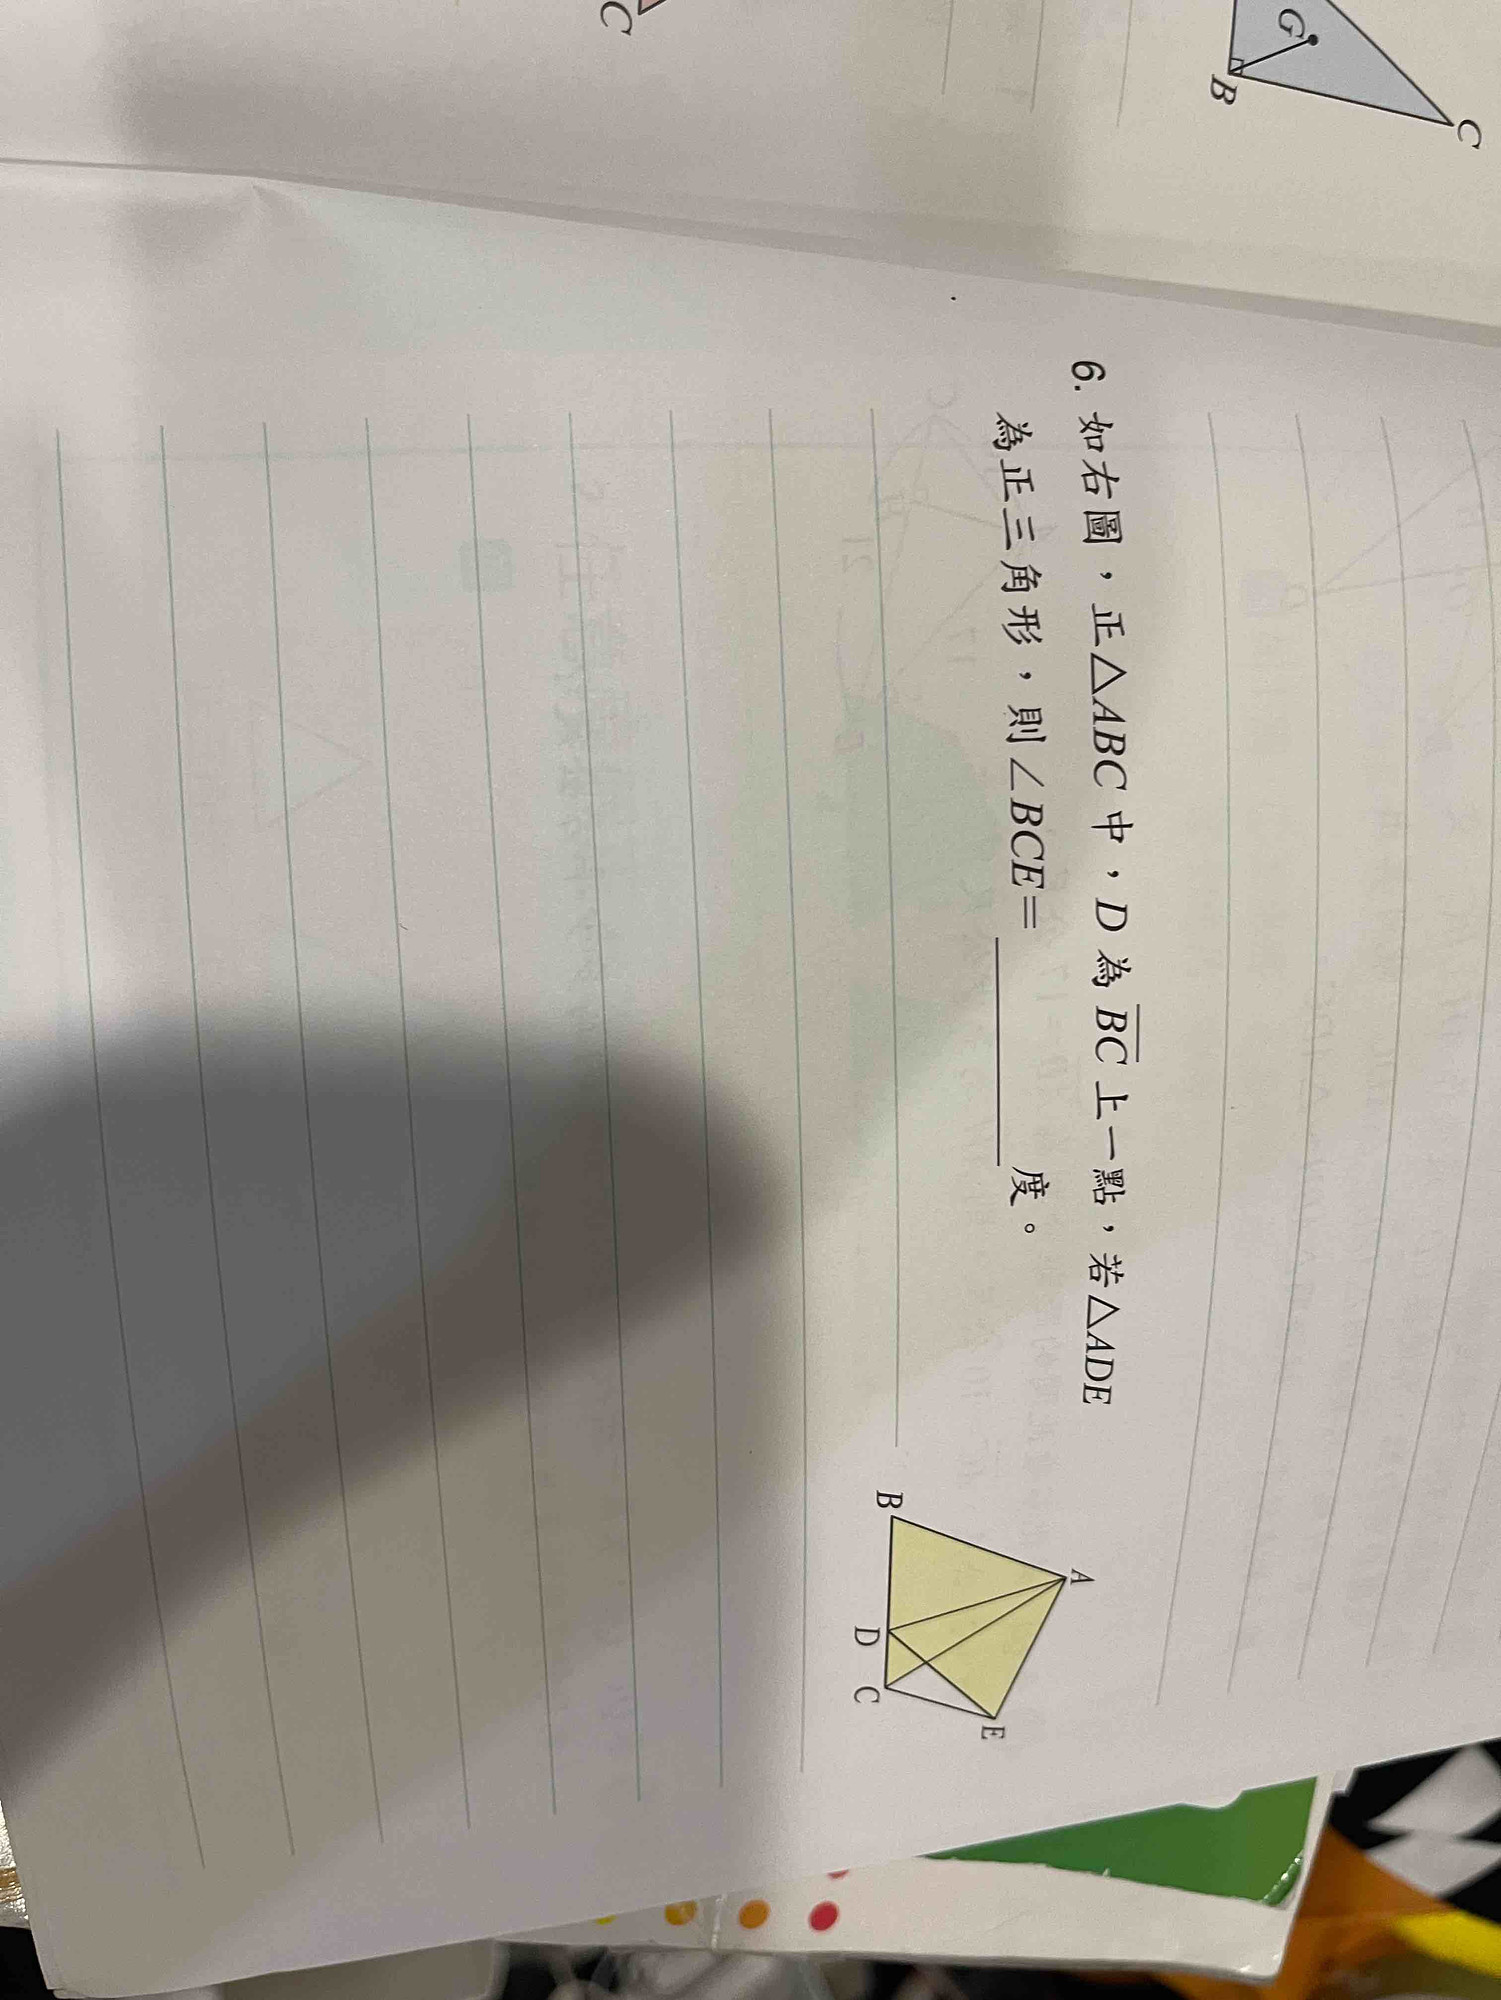 G
B
C
C
6. 如右圖，正△ABC 中，D 為 BC 上一點，若△ADE
為正三角形，則∠BCE=＿＿＿＿＿度。
A
B
D
C
E